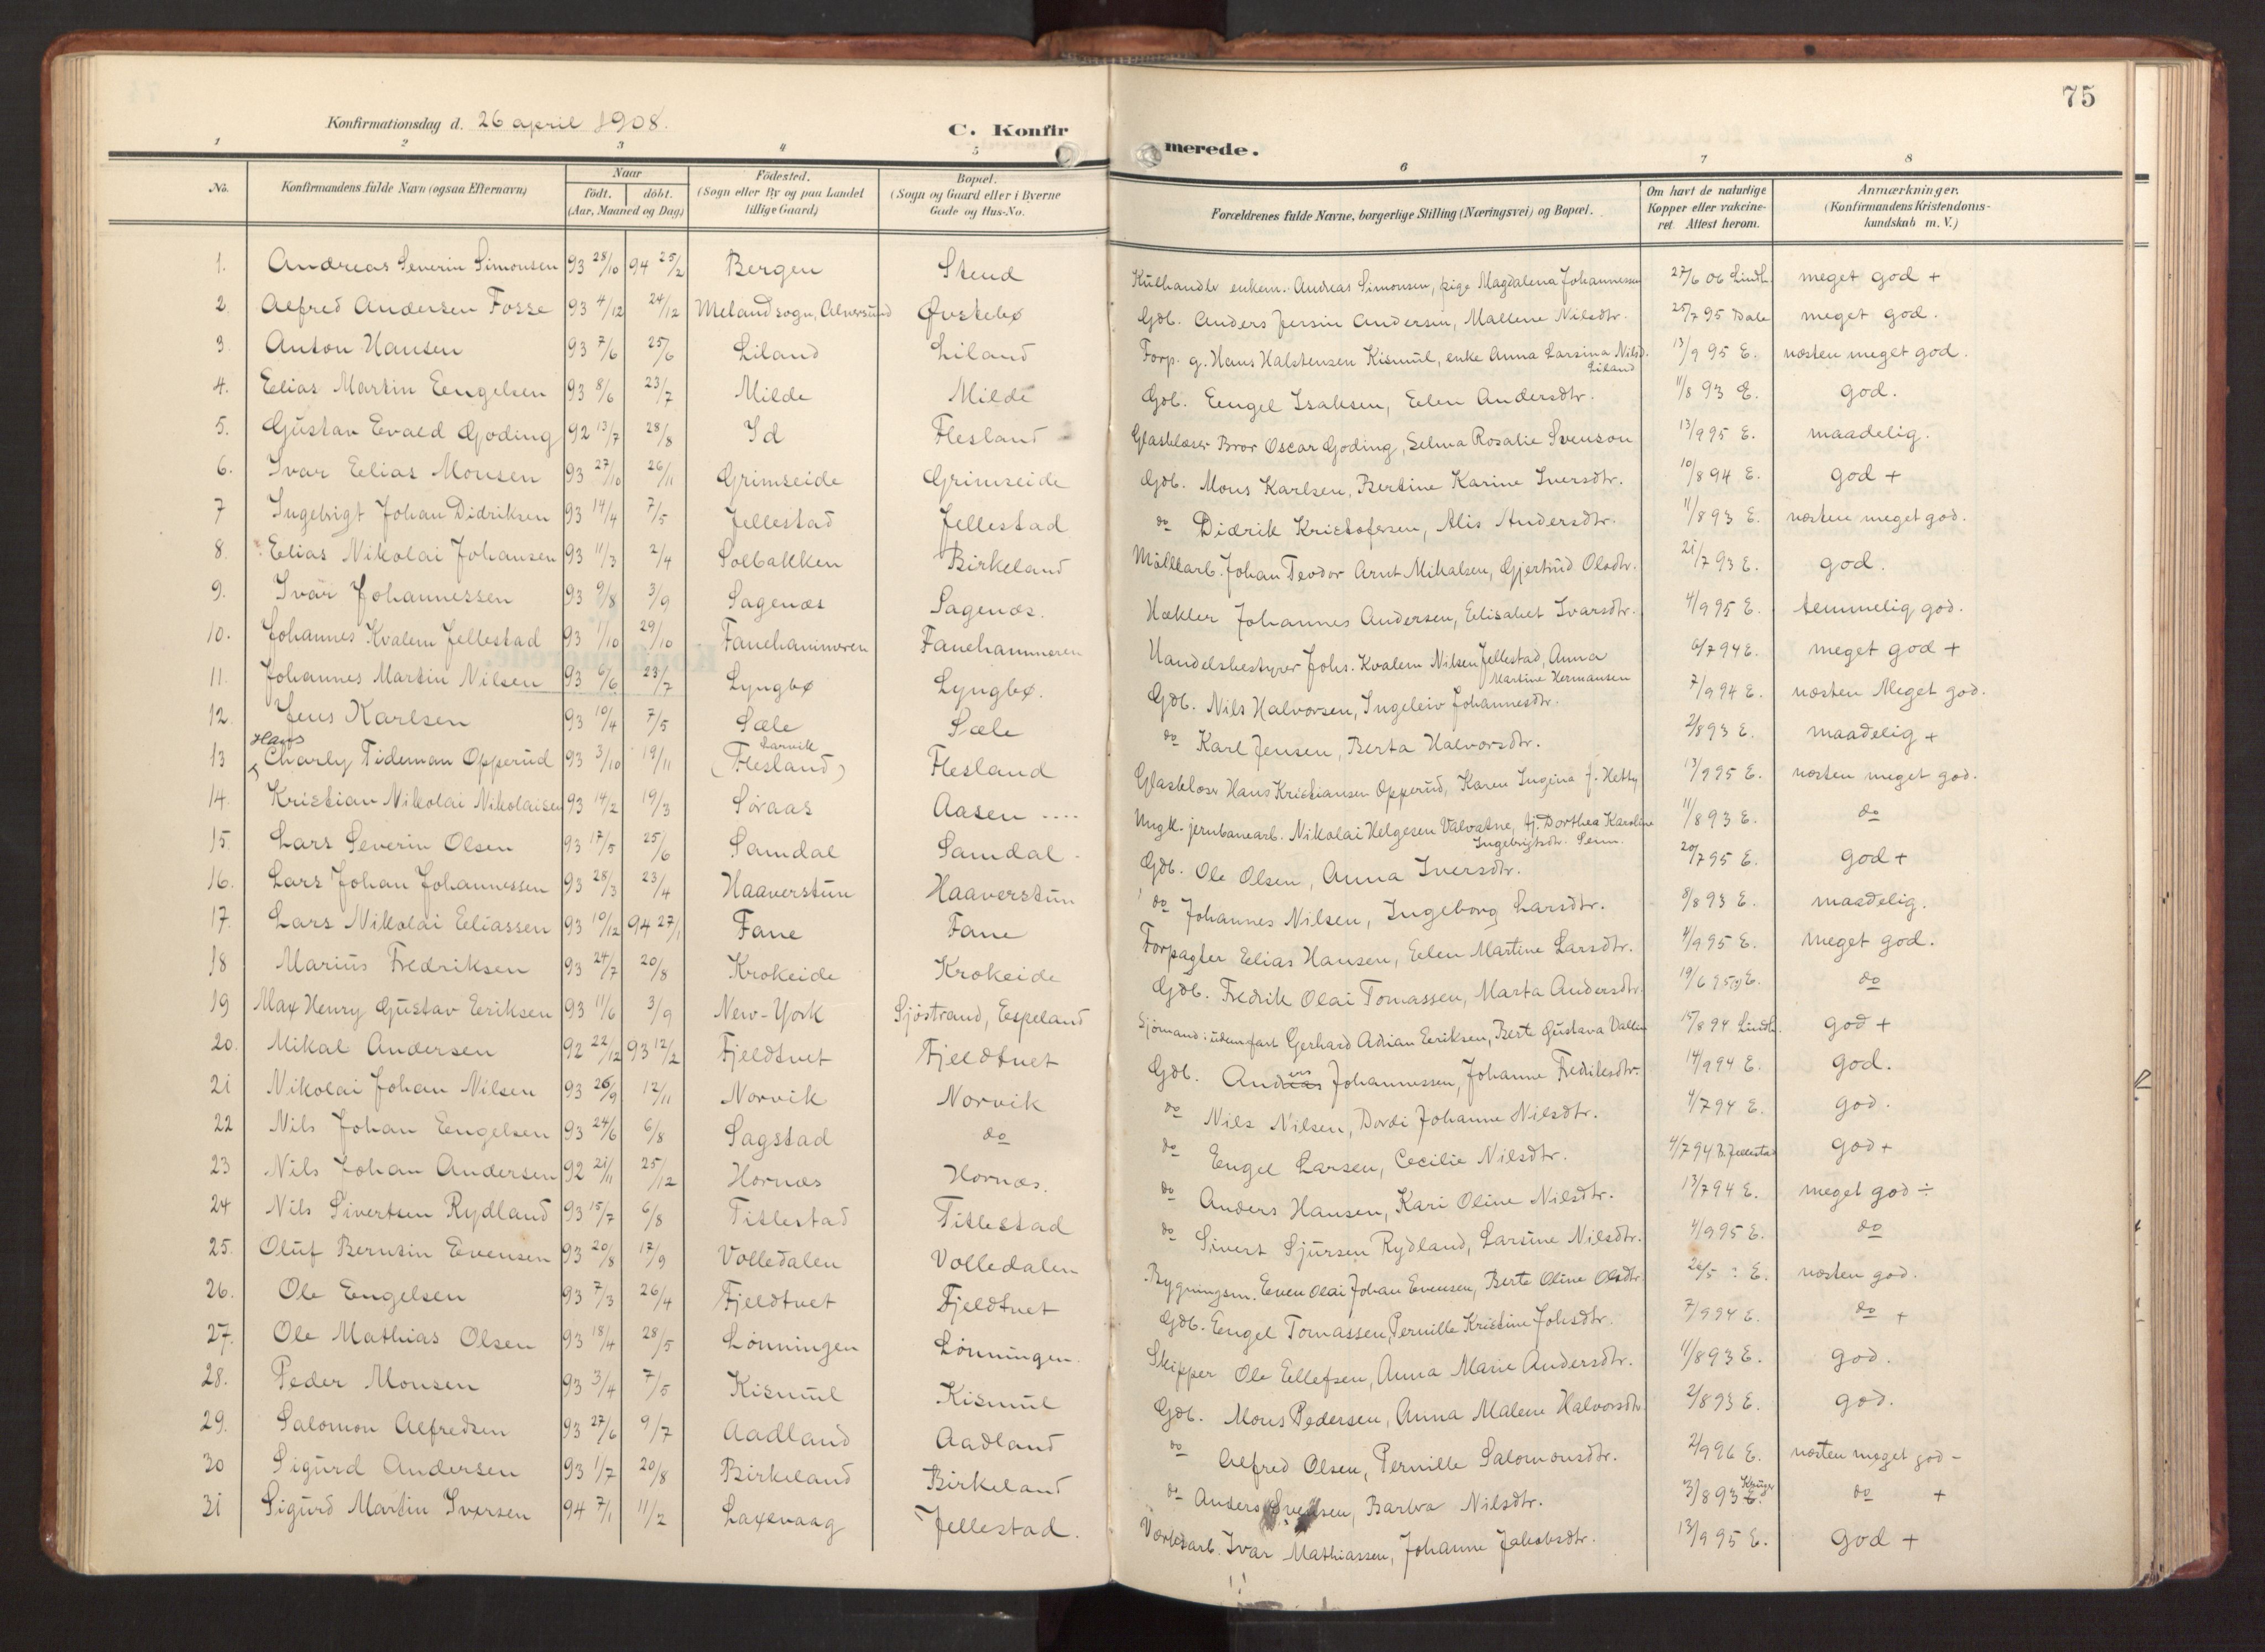 75
Konfirmationsdag d. 26 april 1908.
C. Konfirmerede.
1 2 3 4 5 6 7 8
No. | Konfirmandens fulde Navn (ogsaa Efternavn) | Naar født. døbt. (Aar, Maaned og Dag) | Fødested. (Sogn eller By og paa Landet tillige Gaard) | Bopæl. (Sogn og Gaard eller i Byerne Gade og Hus-No. | Forældrenes fulde Navne, borgerlige Stilling (Næringsvei) og Bopæl. | Om havt de naturlige Kopper eller vakcineret. Attest herom. | Anmærkninger. (Konfirmandens Kristendomskundskab m. V.)
1. Andreas Severin Simonsen | 93 28/10 | 94 25/2 | Bergen | Stend | Kulhandlr enkem. Andreas Simonsen, pige Magdalena Johannessen | 27/6 06 Lindh. | meget god +
2 Alfred Andersen Fosse | 93 4/12 | 24/12 | Meland sogn, Alversund | Øvstebø | Gdb. Anders Jersin Andersen, Mallene Nilsdtr. | 25/7 95 Dale | meget god.
3. Anton Hansen | 93 7/6 | 25/6 | Liland | Liland | Forp. g. Hans Halstensen Kismul, enke Anna Larsina Nilsd. Liland | 13/9 95 E. | næsten meget god.
4. Elias Martin Engelsen | 93 8/6 | 23/7 | Milde | Milde | Gdb. Engel Isaksen, Elen Andersdtr. | 11/8 93 E. | god.
5. Gustav Evald Goding | 92 13/7 | 28/8 | Id | Flesland | Glasblæser Bror Oscar Goding, Selma Rosalie Svenson | 13/9 95 E. | maadelig.
6. Ivar Elias Monsen | 93 27/10 | 26/11 | Grimseide | Grimseide | Gdb. Mons Karlsen, Bertine Karine Iversdtr. | 10/8 94 E. | god +
7 Ingebrigt Johan Didriksen | 93 14/4 | 7/5 | Jellestad | Jellestad | do Didrik Kristofersen, Alis Andersdtr. | 11/8 93 E. | næsten meget god.
8. Elias Nikolai Johansen | 93 11/3 | 2/4 | Solbakken | Birkeland | Möllearb. Johan Teodor Arnt Mikalsen, Gjertrud Olsdtr. | 21/7 93 E. | god.
9. Ivar Johannessen | 93 9/8 | 3/9 | Sagenæs | Sagenæs. | Hækler Johannes Andersen, Elisabet Ivarsdtr. | 4/9 95 E. | temmelig god.
10. Johannes Kvalem Jellestad | 93 1/10 | 29/10 | Fanehammeren | Fanehammeren | Handelsbestyrer Johs. Kvalem Nilsen Jellestad, Anna Martine Hermansen | 6/7 94 E. | meget god +
11. Johannes Martin Nilsen | 93 6/6 | 23/7 | Lyngbø | Lyngbø. | Gdb. Nils Halvorsen, Ingeleiv Johannesdtr. | 7/9 94 E. | næsten Meget god.
12. Jens Karlsen | 93 10/4 | 7/5 | Sæle | Sæle | do Karl Jensen, Berta Halvorsdtr. | 2/8 93 E. | maadelig +
13 Hans Charly Tideman Opperud | 93 3/10 | 19/11 | Larvik (Flesland) | Flesland | Glasblæser Hans Kristiansen Opperud, Karen Ingina f. Hetty | 13/9 95 E. | næsten meget god.
14. Kristian Nikolai Nikolaisen | 93 14/2 | 19/3 | Søraas | Aasen .... | Ungk. jernbanearb. Nikolai Helgesen Valvatne, tj. Dorthea Karoline Ingebrigtsdtr. Seim. | 11/8 93 E. | do
15. Lars Severin Olsen | 93 17/5 | 25/6 | Samdal | Samdal. | Gdb. Ole Olsen, Anna Iversdtr. | 20/7 95 E. | god +
16. Lars Johan Johannessen | 93 28/3 | 23/4 | Haaverstun | Haaverstun | do Johannes Nilsen, Ingeborg Larsdtr. | 8/8 93 E. | maadelig.
17. Lars Nikolai Eliassen | 93 10/12 | 94 27/1 | Fane | Fane | Forpagter Elias Hansen, Elen Martine Larsdtr. | 4/9 95 E. | meget god.
18 Marius Fredriksen | 93 24/7 | 20/8 | Krokeide | Krokeide | Gdb. Fredrik Olai Tomassen, Marta Andersdtr. | 19/6 95 E. | do
19 Max Henry Gustav Eriksen | 93 11/6 | 3/9 | New-York | Sjöstrand, Espeland | Sjömand i udenrfart Gerhard Adrian Eriksen, Berte Gustava Vallin | 15/8 94 Lindh. | god +
20. Mikal Andersen | 92 22/12 | 93 12/2 | Fjeldtvet | Fjeldtvet | Gdb. Anders Johannessen, Johanne Frediksdtr. | 14/9 94 E. | god.
21 Nikolai Johan Nilsen | 93 26/9 | 12/11 | Norvik | Norvik | do Nils Nilsen, Dordi Johanne Nilsdtr. | 4/7 94 E. | god.
22 Nils Johan Engelsen | 93 24/6 | 6/8 | Sagstad | do | do Engel Larsen, Cecilie Nilsdtr. | 4/7 94 B. Jellestad | god +
23 Nils Johan Andersen | 92 21/11 | 25/12 | Hornæs | Hornæs. | do Anders Hansen, Kari Oline Nilsdtr. | 13/7 94 E. | meget god ÷
24 Nils Sivertsen Rydland | 93 15/7 | 6/8 | Titlestad | Titlestad | do Sivert Sjursen Rydland, Larsine Nilsdtr. | 4/9 95 E. | do
25. Oluf Berntin Evensen | 93 20/8 | 17/9 | Volledalen | Volledalen | Bygningsm. Even Olai Johan Evensen, Berte Oline Olsdtr. | 26/5 : E. | næsten god.
26. Ole Engelsen | 93 7/3 | 26/4 | Fjeldtvet | Fjeldtvet | Gdb. Engel Tomassen, Pernille Kristine Johsdtr. | 7/9 94 E. | do +
27. Ole Mathias Olsen | 93 18/4 | 28/5 | Lønningen | Lønningen. | Skipper Ole Ellefsen, Anna Marie Andersdtr. | 11/8 93 E. | god.
28. Peder Monsen | 93 3/4 | 7/5 | Kismul | Kismul | Gdb. Mons Pedersen, Anna Malene Halvorsdtr | 2/8 93 E. | god.
29. Salomon Alfredsen | 93 27/6 | 9/7 | Aadland | Aadland | do Alfred Olsen, Pernille Salomonsdtr. | 2/9 96 E. | næsten meget god -
30 Sigurd Andersen | 93 1/7 | 20/8 | Birkeland | Birkeland | do Anders Nilsdtr. Barbra | 3/8 93 Krüger | do +
31 Sigurd Martin Iversen | 94 7/1 | 11/2 | Laxevaag | Jellestad. | Værkdarb. Ivar Mathiassen, Johanne Jakobsdtr. | 13/9 95 E. | god +